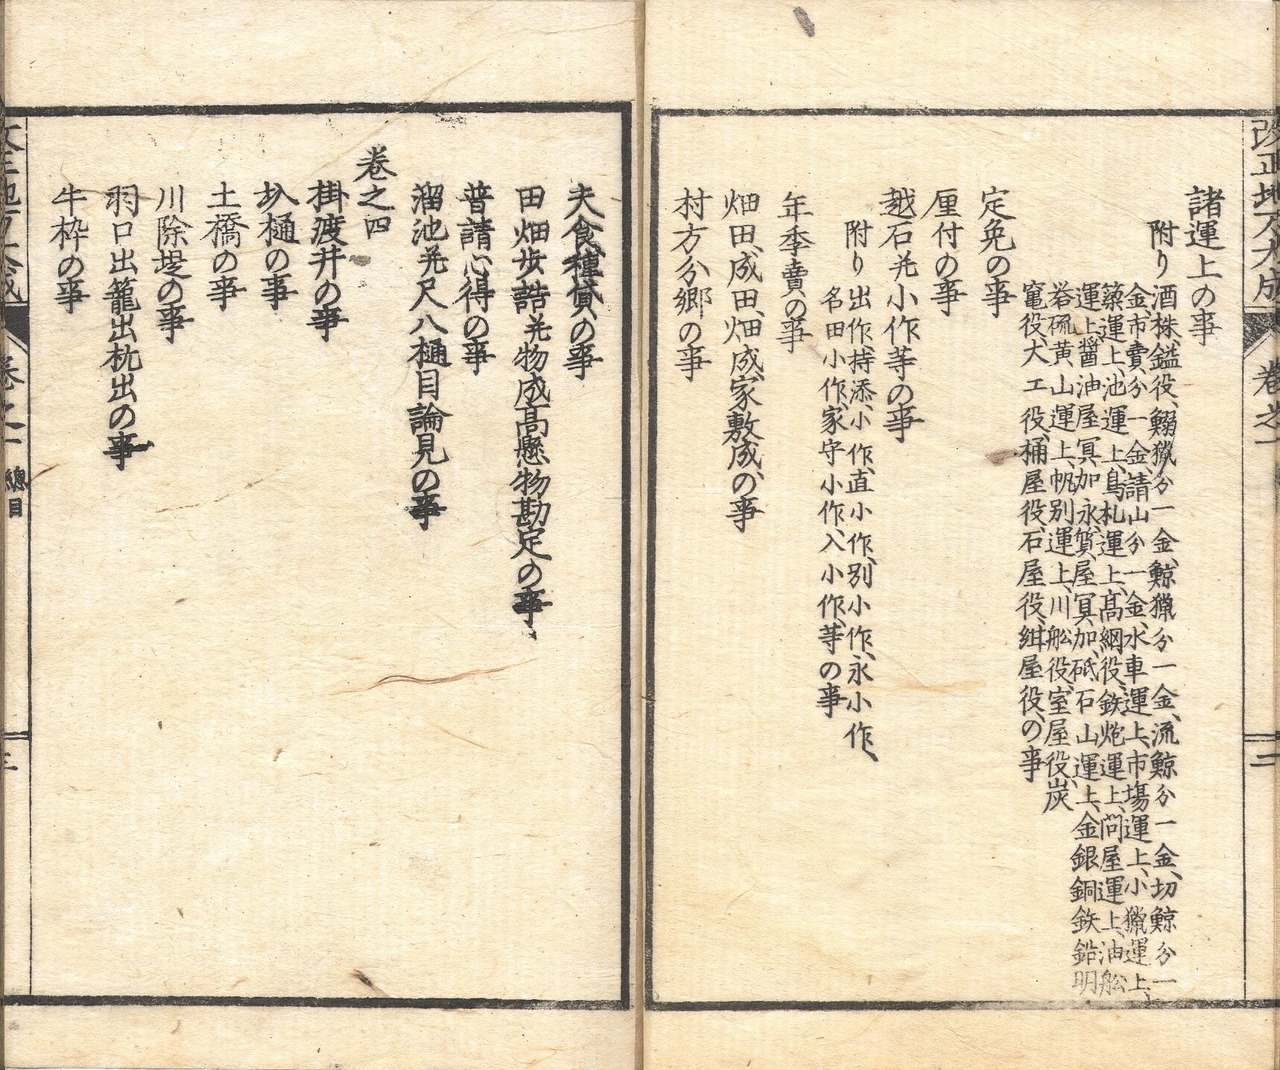 改正地方大成 巻之一 二
諸運上の事
附り酒株、鎰役、鰯獵分一金、鯨獵分一金、流鯨分一金、切鯨分一
金、市賣分一金、請山分一金、水車運上、市場運上、小獵運上、
簗運上、池運上、鳥札運上、高網役、鉄炮運上、問屋運上、油舩
運上、醤油屋冥加永、質屋冥加、砥石山運上、金銀銅鉄鉛明
礬硫黄山運上、帆別運上、川舩役、室屋役、炭
竃役、大工役、桶屋役、石屋役、紺屋役、の事
定免の事
厘付の事
越石并小作等の事
附り出作、持添、小作、直小作、別小作、永小作、
名田小作、家守小作、入小作、等の事
年季賣の事
畑田、成田、畑成、家敷成、の事
村方分郷の事
夫食種貸の事
田畑歩詰并物成高懸物勘定の事
普請心得の事
溜池并尺八樋目論見の事
巻之四
掛渡井の事
圦樋の事
土橋の事
川除堤の事
羽口出籠出杭出の事
牛枠の事